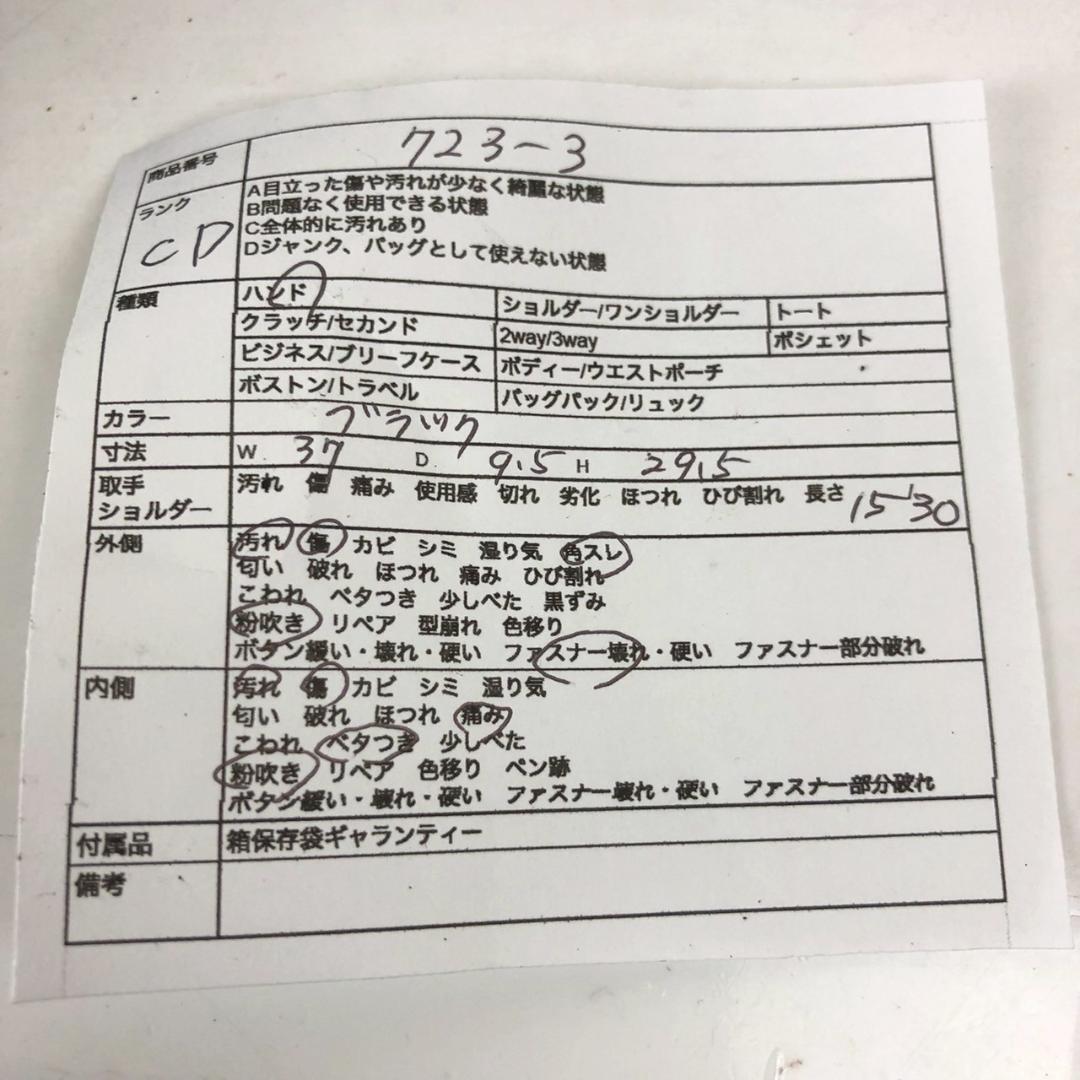 商品番号 723-3
ランク CD
A目立った傷や汚れが少なく綺麗な状態
B問題なく使用できる状態
C全体的に汚れあり
Dジャンク、バッグとして使えない状態
種類 ハンド ショルダー/ワンショルダー トート
クラッチ/セカンド 2way/3way ポシェット
ビジネス/ブリーフケース ボディー/ウエストポーチ
ボストン/トラベル バッグパック/リュック
カラー ブラック
寸法 W 37 D 9.5 H 29.5
取手 汚れ 傷 痛み 使用感 切れ 劣化 ほつれ ひび割れ 長さ 15 30
ショルダー
外側 汚れ 傷 カビ シミ 湿り気 角スレ
匂い 破れ ほつれ 痛み ひび割れ
こわれ ベタつき 少しべた 黒ずみ
粉吹き リペア 型崩れ 色移り
ボタン緩い・壊れ・硬い ファスナー壊れ・硬い ファスナー部分破れ
内側 汚れ 傷 カビ シミ 湿り気
匂い 破れ ほつれ 痛み
こわれ ベタつき 少しべた
粉吹き リペア 色移り ペン跡
ボタン緩い・壊れ・硬い ファスナー壊れ・硬い ファスナー部分破れ
付属品 箱保存袋ギャランティー
備考